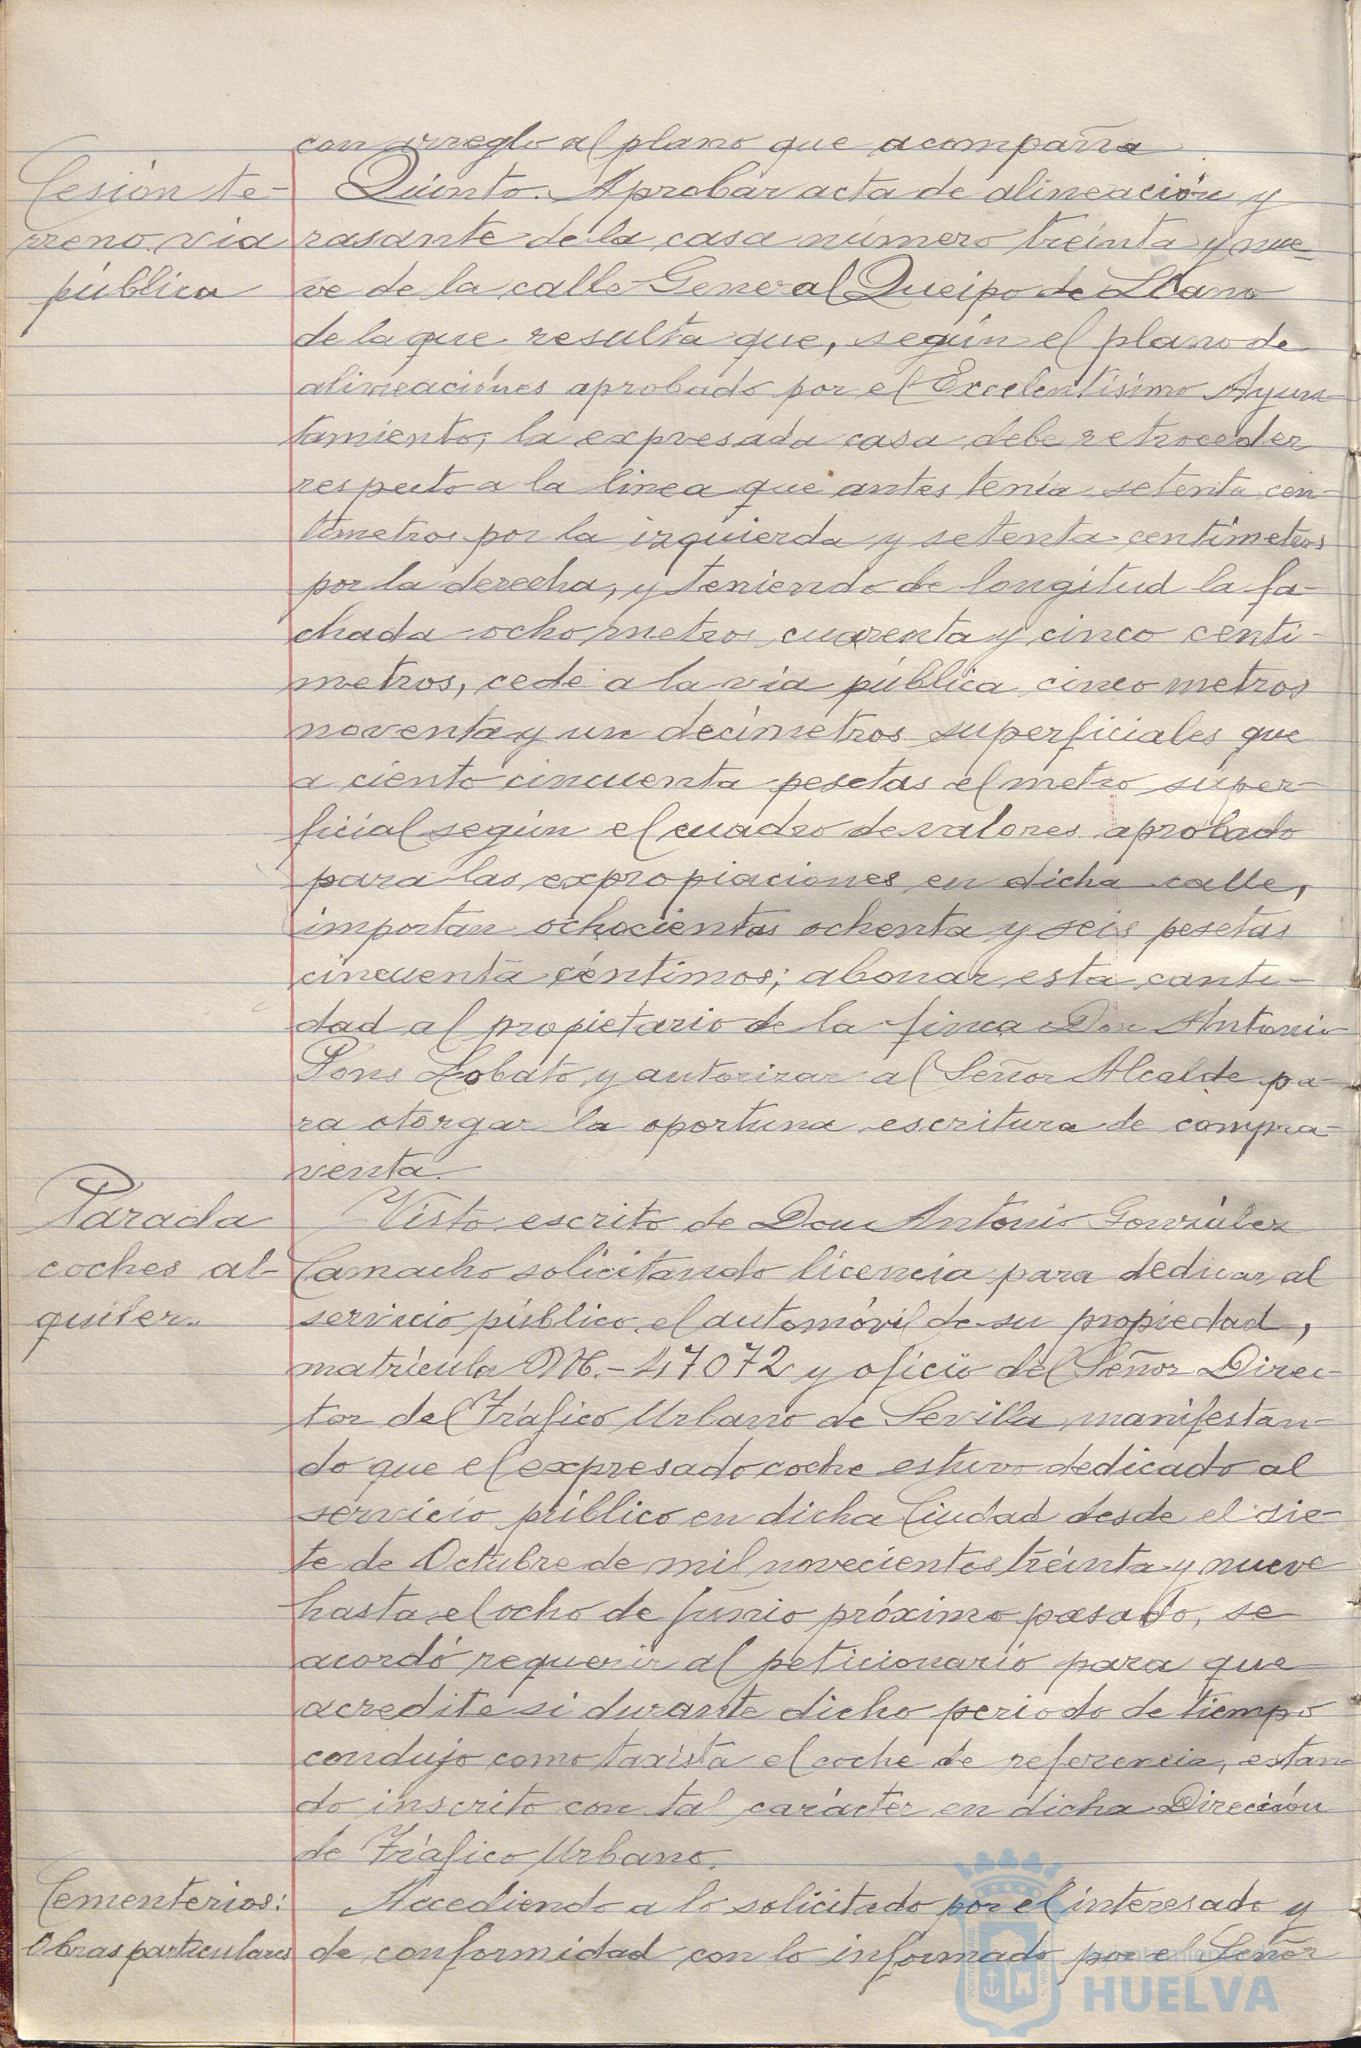 con arreglo al plano que acompaña
Cesión te-
rreno via
pública
Quinto. Aprobar acta de alineación y
rasante de la casa número treinta y nue-
ve de la calle General Queipo de Llano
de la que resulta que, según el plano de
alineaciones aprobado por el Excelentísimo Ayun-
tamiento, la expresada casa debe retroceder
respecto a la linea que antes tenía setenta cen-
timetros por la izquierda y setenta centímetros
por la derecha, y teniendo de longitud la fa-
chada ocho metros cuarenta y cinco centi-
metros, cede a la vía pública cinco metros
noventa y un decímetros superficiales que
a ciento cincuenta pesetas el metro super-
ficial según el cuadro de valores aprobado
para las expropiaciones en dicha calle,
importan ochocientas ochenta y seis pesetas
cincuenta céntimos; abonar esta canti-
dad al propietario de la finca Don Antonio
Pons Lobato y autorizar al Señor Alcalde pa-
ra otorgar la oportuna escritura de compra-
venta.
Parada
coches al-
quiler.
Visto escrito de Don Antonio González
Camacho solicitando licencia para dedicar al
servicio público el automóvil de su propiedad,
matrícula M.-47072 y oficio del Señor Direc-
tor del Tráfico Urbano de Sevilla manifestan-
do que el expresado coche estuvo dedicado al
servicio público en dicha Ciudad desde el sie-
te de Octubre de mil novecientos treinta y nueve
hasta el ocho de Junio próximo pasado, se
acordó requerir al peticionario para que
acredite si durante dicho periodo de tiempo
condujo como taxista el coche de referencia, estan-
do inscrito con tal carácter en dicha Dirección
de Tráfico Urbano.
Cementerios:
Obras particulares
Accediendo a lo solicitado por el interesado y
de conformidad con lo informado por el Señor
HUELVA